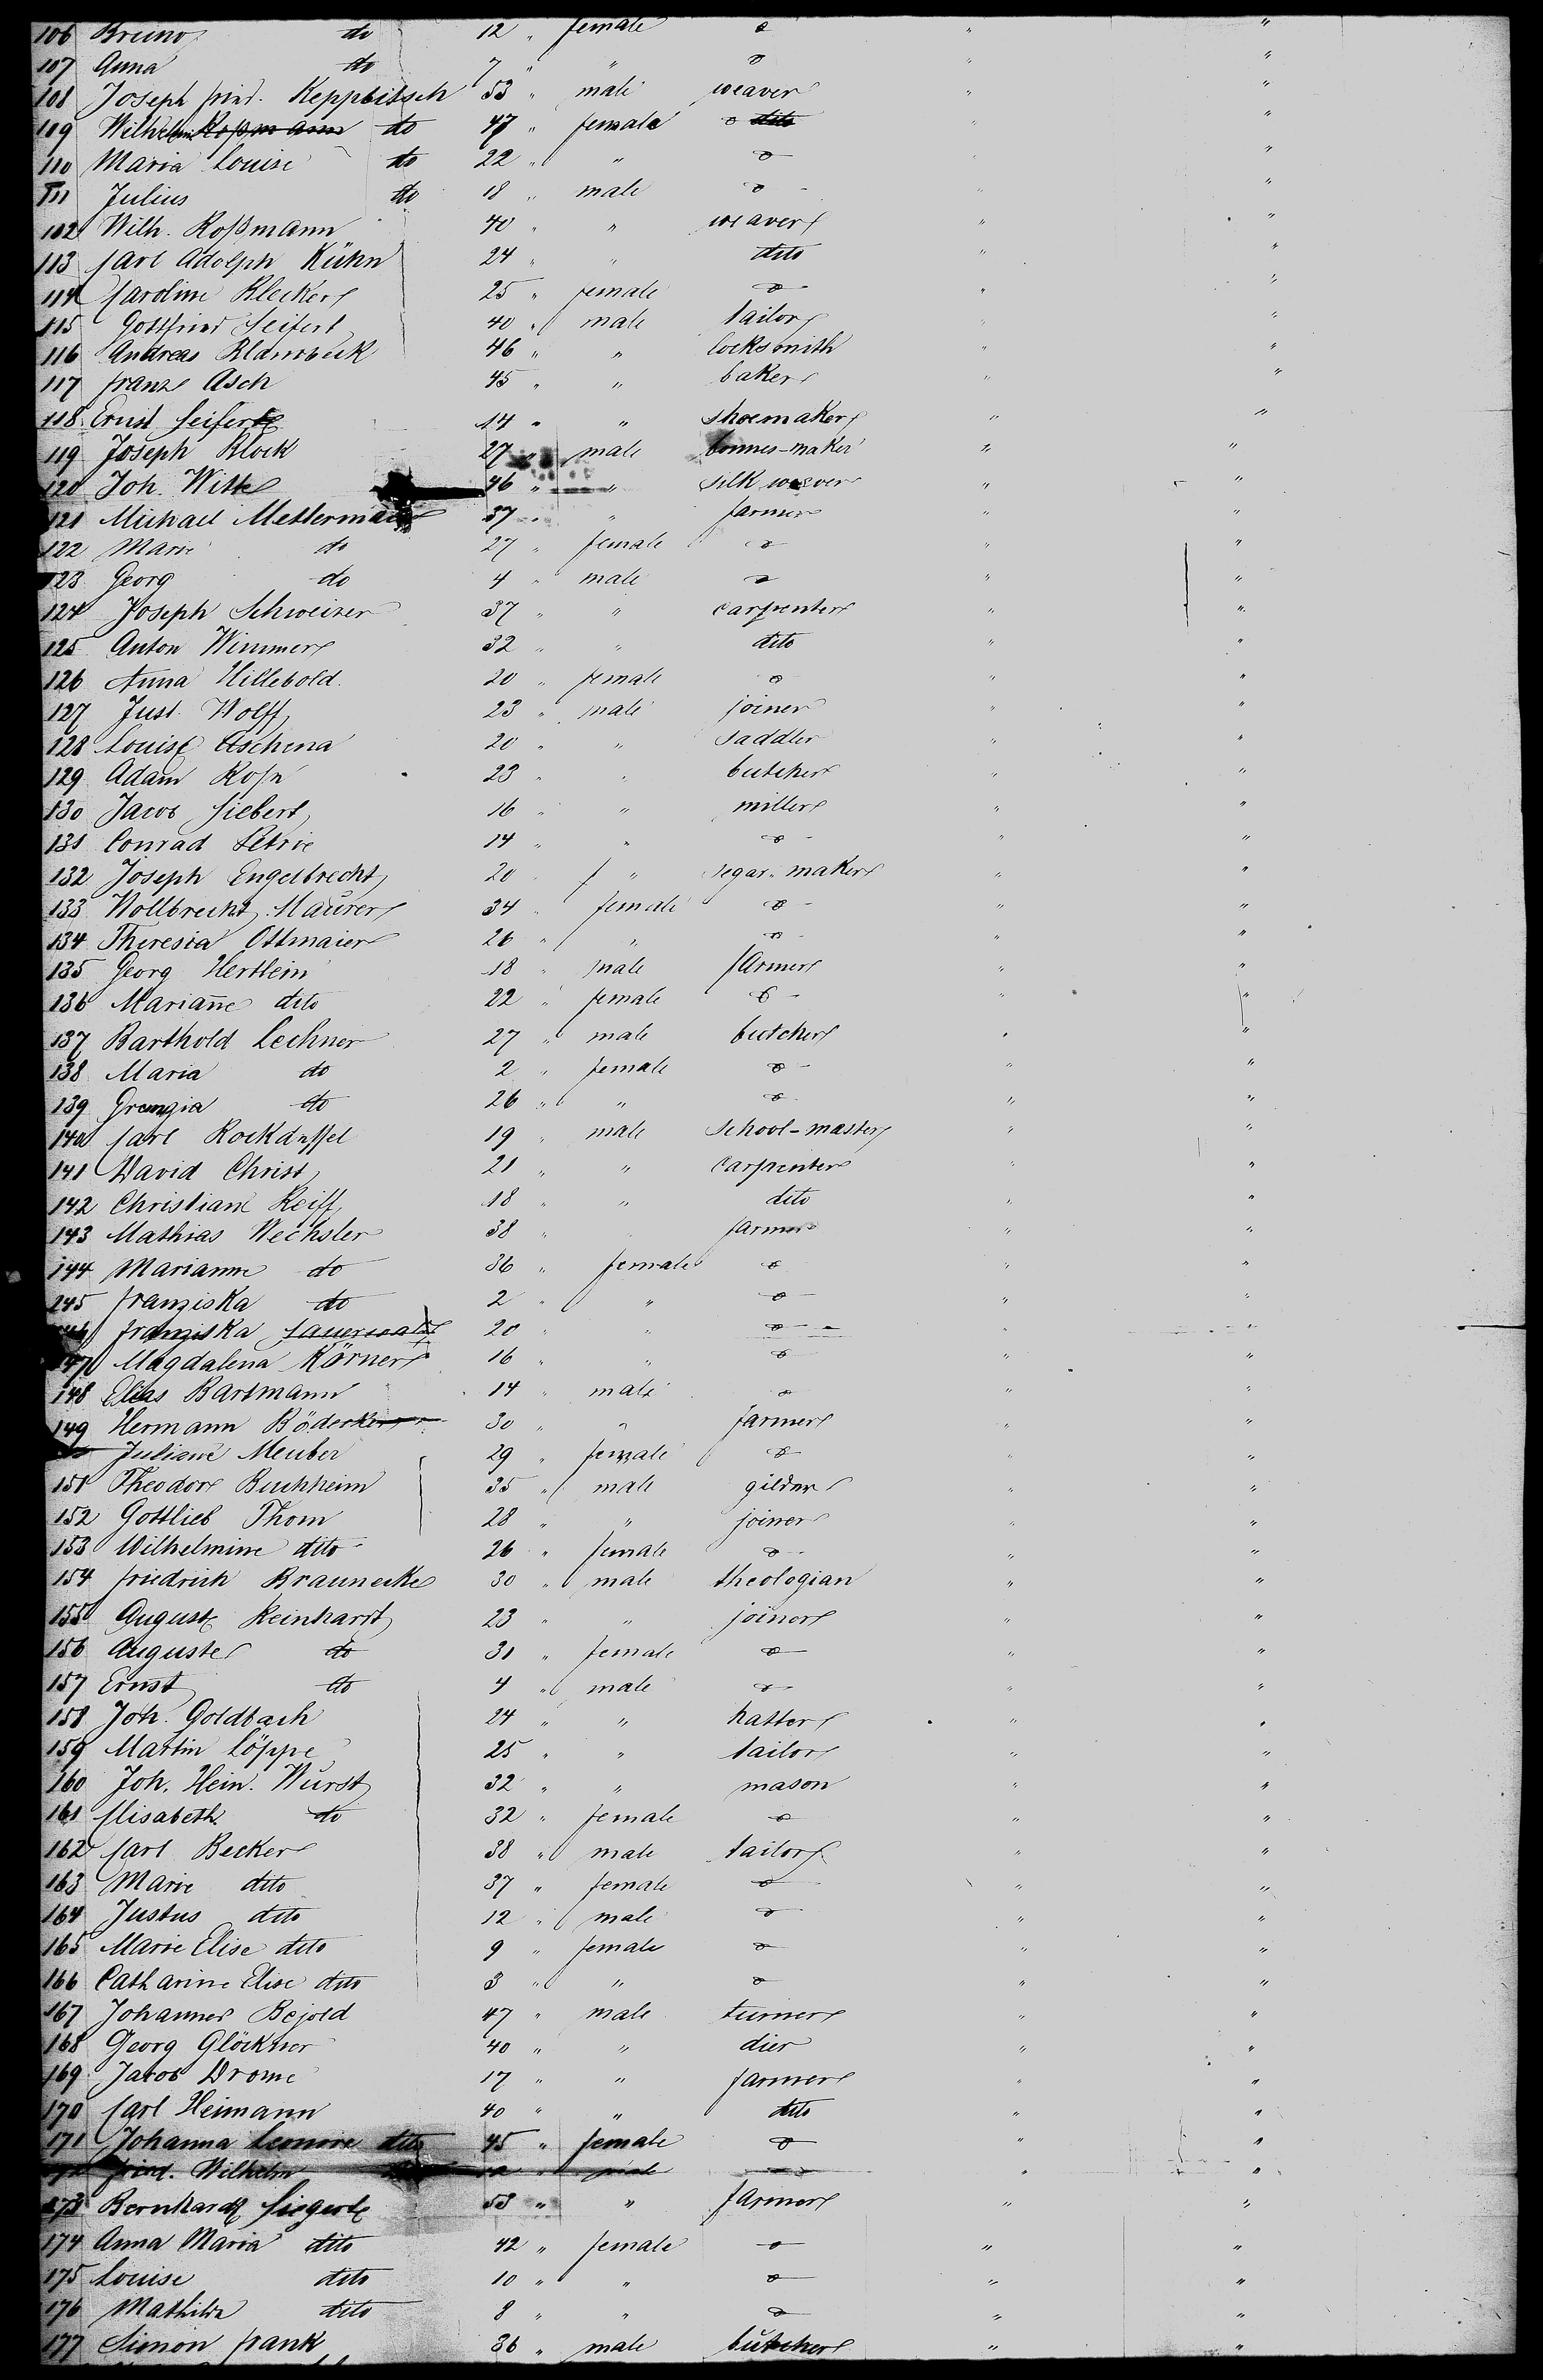 106 Bruno do 12 " female o " "
107 Anna do 7 " " o " "
108 Joseph fried. Keppbitsch 53 " male weaver " "
109 Wilhelm Roßmann do 47 " female o dito " "
110 Maria Louise do 22 " " o "
111 Julius do 18 " male o " "
102 Wilh. Roßmann 40 " " weaver " "
113 Carl Adolph Kühn 24 " " dito " "
114 Caroline Klecker 25 " female o " "
115 Gottfried Seifert 40 " male tailor " "
116 Andreas 46 " " locksmith " "
117 Franz Asch 45 " " baker " "
118 Ernst Seifert 14 " " shoemaker " "
119 Joseph Klock 27 " male -maker " "
120 Joh. Witte 46 " " silk weaver " "
121 Michael Mettermaier 37 " " farmer " "
122 Marie do 27 " female o " "
123 Georg do 4 " male o " "
124 Joseph Schweizer 37 " " carpenter " "
125 Anton Wimmer 32 " " dito " "
126 Anna Hillebold 20 " female o " "
127 Just. Wolff 23 " male joiner " "
128 Louis Aschena 20 " " saddler " "
129 Adam 23 " " butcher " "
130 Jacob Siebert 16 " " miller " "
131 Conrad Petrie 14 " " o " "
132 Joseph Engelbrecht 20 " " segar-maker " "
133 Wollbrecht Maurer 34 " female o " "
134 Theresia Ottmaier 26 " " o " "
135 Georg Hertlein 18 " male farmer " "
136 Marian̅e dito 22 " female o " "
137 Barthold Lechner 27 " male butcher " "
138 Maria do 2 " female o " "
139 do 26 " " o " "
140 Carl 19 " male School-master " "
141 David Christ 21 " " carpenter " "
142 Christian Reiff 18 " " dito " "
143 Mathias Wechsler 38 " " farmer " "
144 Marianne do 36 " female o " "
145 Franziska do 2 " " o " "
146 Franziska Sauerwald 20 " " o " "
147 Magdalena Körner 16 " " o " "
148 Elias Bartmann 14 " male o " "
149 Hermann Bödecker 30 " " farmer " "
Juliane Meuber 29 " female o " "
151 Theodor Buchheim 35 " male gilder " "
152 Gottlieb Thom 28 " " joiner " "
153 Wilhelmine dito 26 " female o " "
154 Friedrich Braunecke 30 " male theologian " "
155 August Reinhardt 23 " " joiner " "
156 Auguste do 31 " female o " "
157 Ernst do 4 " male o " "
158 Joh. Goldbach 24 " " hatter " "
159 Martin Löppe 25 " " tailor " "
160 Joh. Hein. Wurst 32 " " mason " "
161 Elisabeth do 32 " female o " "
162 Carl Becker 38 " male tailor " "
163 Marie dito 37 " female o " "
164 Justus dito 12 " male o " "
165 Marie Elise dito 9 " female o " "
166 Catharine Elise dito 3 " " o " "
167 Johannes Bezold 47 " male turner " "
168 Georg Glöckner 40 " " dier " "
169 Jacob Drome 17 " " farmer " "
170 Carl Heimann 40 " " dito " "
171 Johanna Leonore dito 45 " female o " "
fried. Wilhelm male " "
173 Bernhardt Siegert 53 " " farmer " "
174 Anna Maria dito 42 " female o " "
175 Louise dito 10 " " o " "
176 Mathilda dito 8 " " o " "
177 Simon Frank 36 " male butcher " "